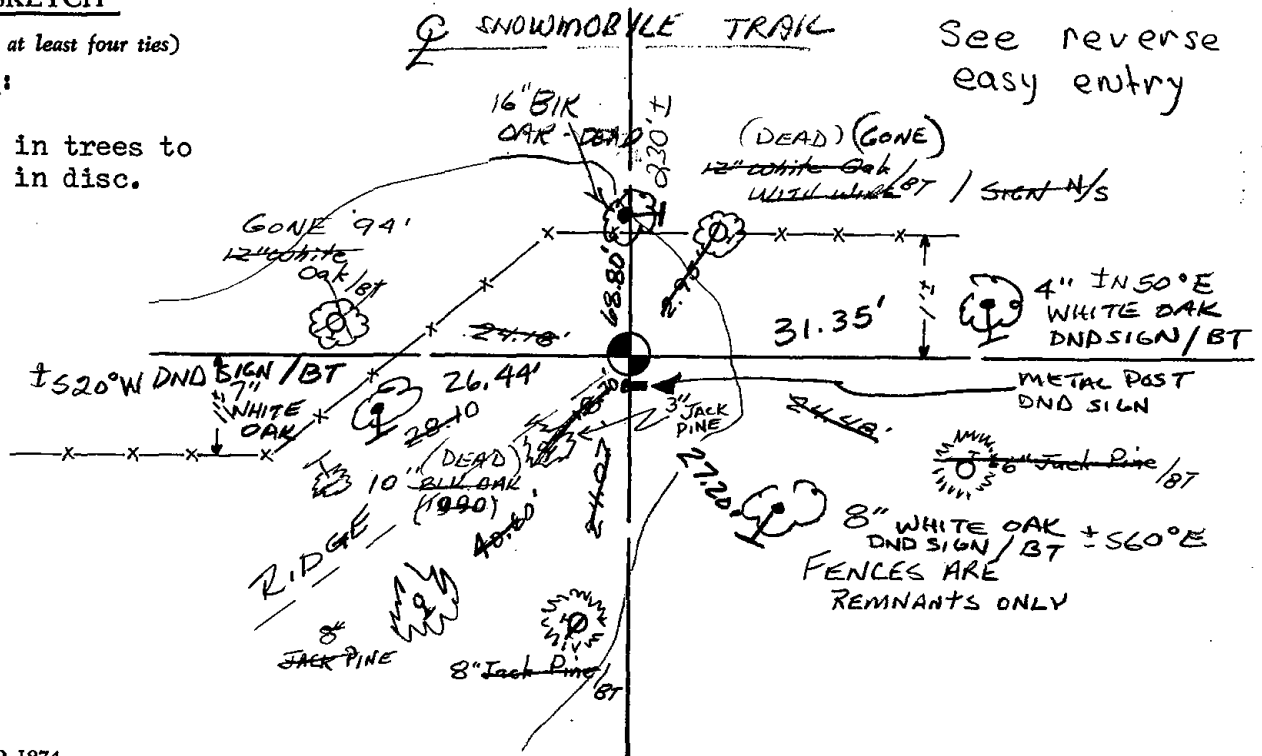 SKETCH
at least four ties)
in trees to
in disc.
℄ SNOWMOBILE TRAIL
See reverse
easy entry
16" BlK
OAK - DEAD
230' ±
(DEAD) (GONE)
12" White Oak
WITH WIRE /BT / SIGN N/S
GONE '94'
12" White
Oak/BT
68.80'
31.35'
4" ± N50°E
WHITE OAK
DND SIGN / BT
24.18'
± S20°W DND SIGN / BT
7"
WHITE
OAK
26.44'
28.10
3" JACK
PINE
METAL POST
DND SIGN
24.48'
6" Jack Pine /BT
10" (DEAD)
BLK. OAK
(1990)
24.07
27.20'
8" WHITE OAK
DND SIGN / BT ± S60°E
FENCES ARE
REMNANTS ONLY
RIDGE
40.60'
8"
JACK PINE
8" Jack Pine /BT
1974